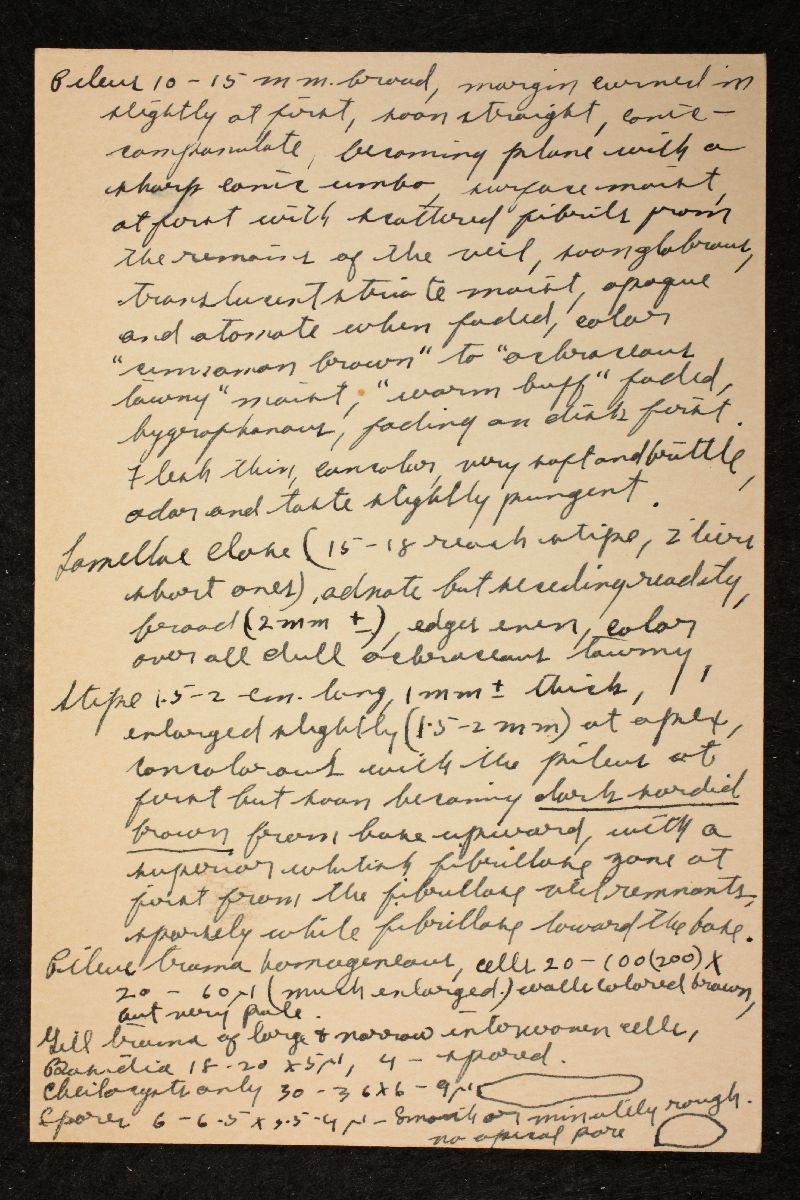 Pileus 10 - 15 mm. broad, margin curved in
slightly at first, soon straight, conic-
campanulate, becoming plane with a
sharp conic umbo, surface moist,
at first with scattered fibrils from
the remains of the veil, soon glabrous,
translucent striate moist, opaque
and atomate when faded, color
"cinnamon brown" to "ochraceous
tawny" moist, "warm buff" faded,
hygrophanous, fading on disk first.
Flesh thin, concolor, very soft and brittle,
odor and taste slightly pungent.
Lamellae close (15-18 reach stipe, 2 tiers
short ones), adnate but seceding readily,
broad (2 mm ±), edges even, color
over all dull ochraceous tawny,
Stipe 1.5-2 cm. long, 1 mm ± thick,
enlarged slightly (1.5-2 mm) at apex,
concolorous with the pileus at
first but soon becoming dark sordid
brown from base upward, with a
superior whitish fibrillose zone at
first from the fibrillose veil remnants,
sparsely white fibrillose toward the base.
Pileus trama homogeneous, cells 20-100(200) X
20 - 60 µ (much enlarged.) walls colored brown,
but very pale.
Gill trama of large & narrow interwoven cells,
Basidia 18-20 x 5 µ, 4-spored.
Cheilocysts only 30 - 36 x 6 - 9 µ
Spores 6 - 6.5 x 3.5-4 µ - Smooth or minutely rough.
no apical pore